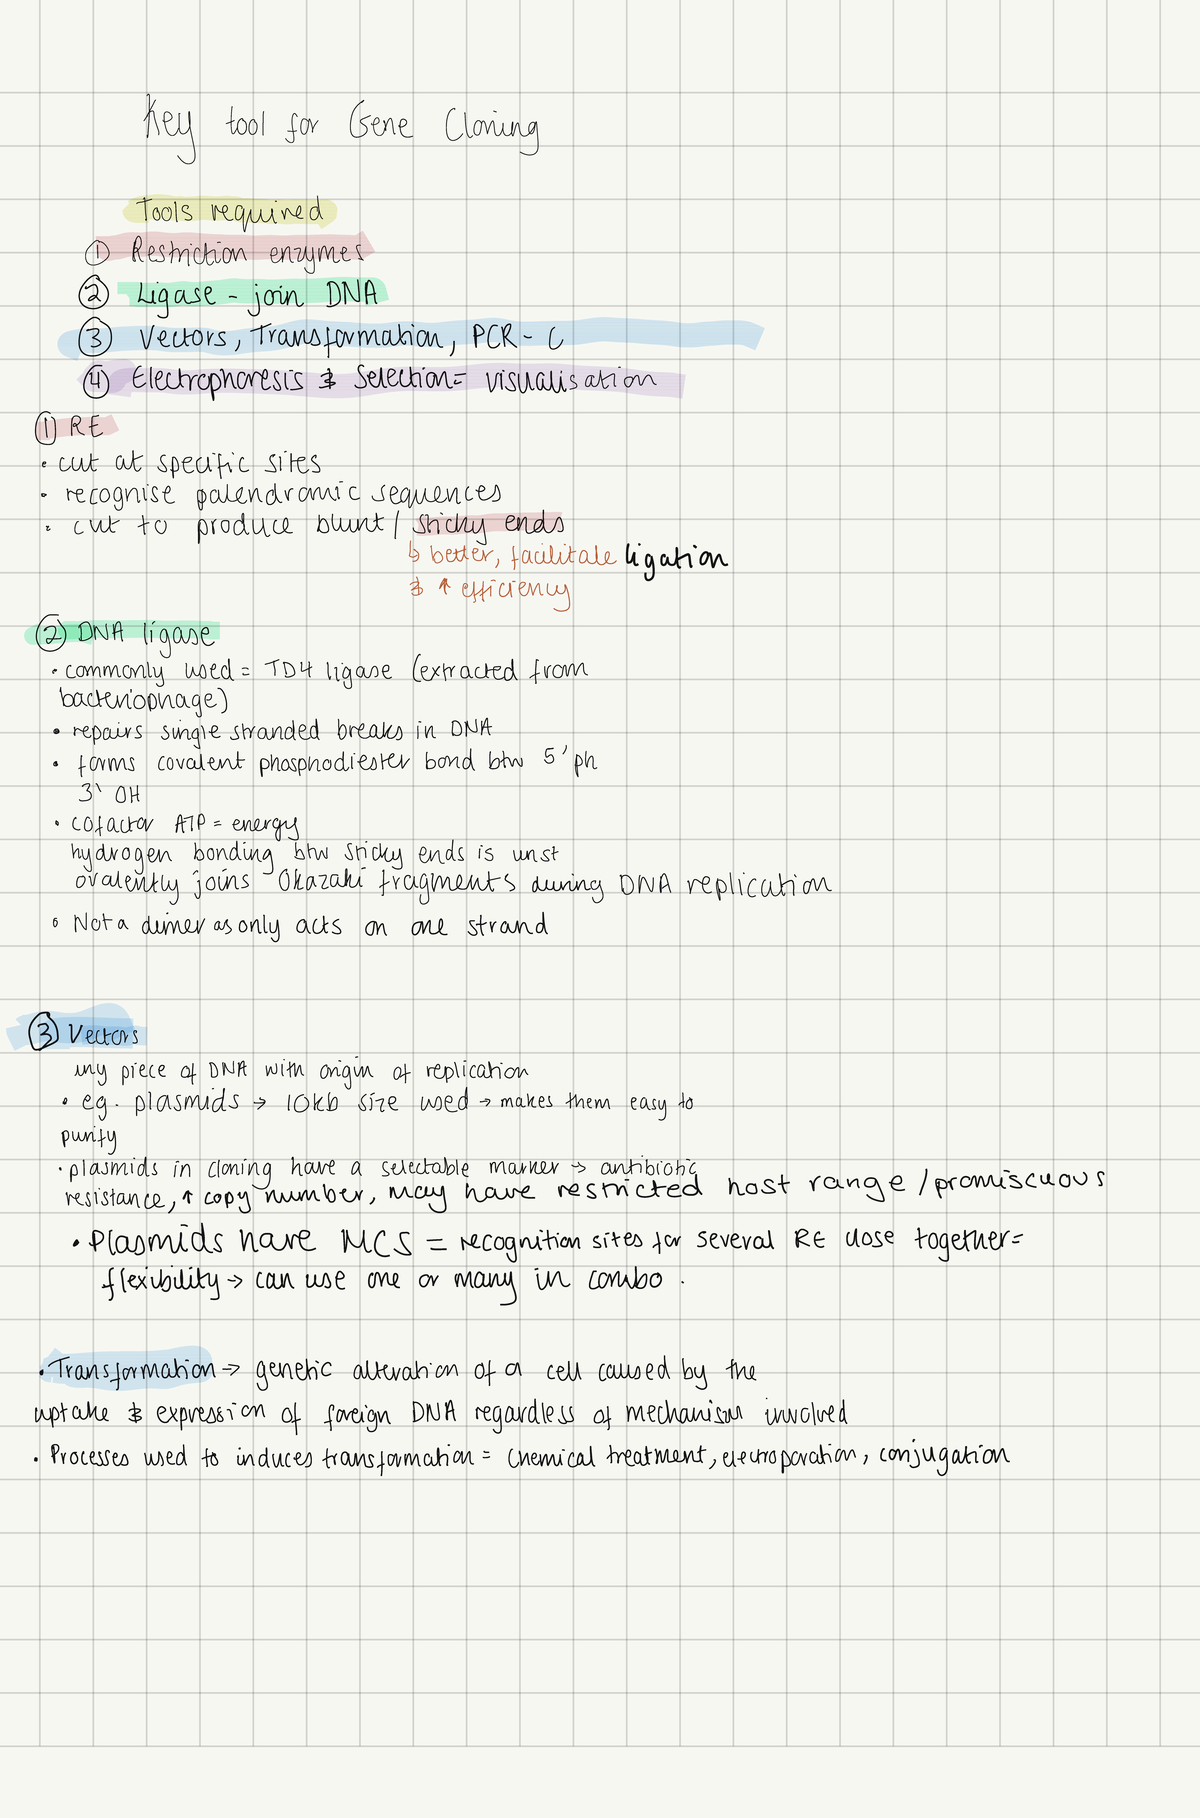 Key tool for Gene Cloning
Tools required
① Restriction enzymes
② Ligase - join DNA
③ Vectors, Transformation, PCR - C
④ Electrophoresis & Selection = visualisation
① RE
• cut at specific sites
• recognise palendramic sequences
• cut to produce blunt / sticky ends
↳ better, facilitate ligation
& ↑ efficiency
② DNA ligase
• commonly used = TD4 ligase (extracted from
bacteriophage)
• repairs single stranded breaks in DNA
• forms covalent phosphodiester bond btw 5' ph
3' OH
• cofactor ATP = energy
hydrogen bonding btw sticky ends is unst
ovalently joins Okazaki fragments during DNA replication
• Not a dimer as only acts on one strand
③ Vectors
any piece of DNA with origin of replication
• eg. plasmids → 10kb size used → makes them easy to
purify
• plasmids in cloning have a selectable marker → antibiotic
resistance, ↑ copy number, may have restricted host range / promiscuous
• Plasmids have MCS = recognition sites for several RE close together =
flexibility → can use one or many in combo .
• Transformation → genetic alteration of a cell caused by the
uptake & expression of foreign DNA regardless of mechanism involved
• Processes used to induces transformation = Chemical treatment, electroporation, conjugation